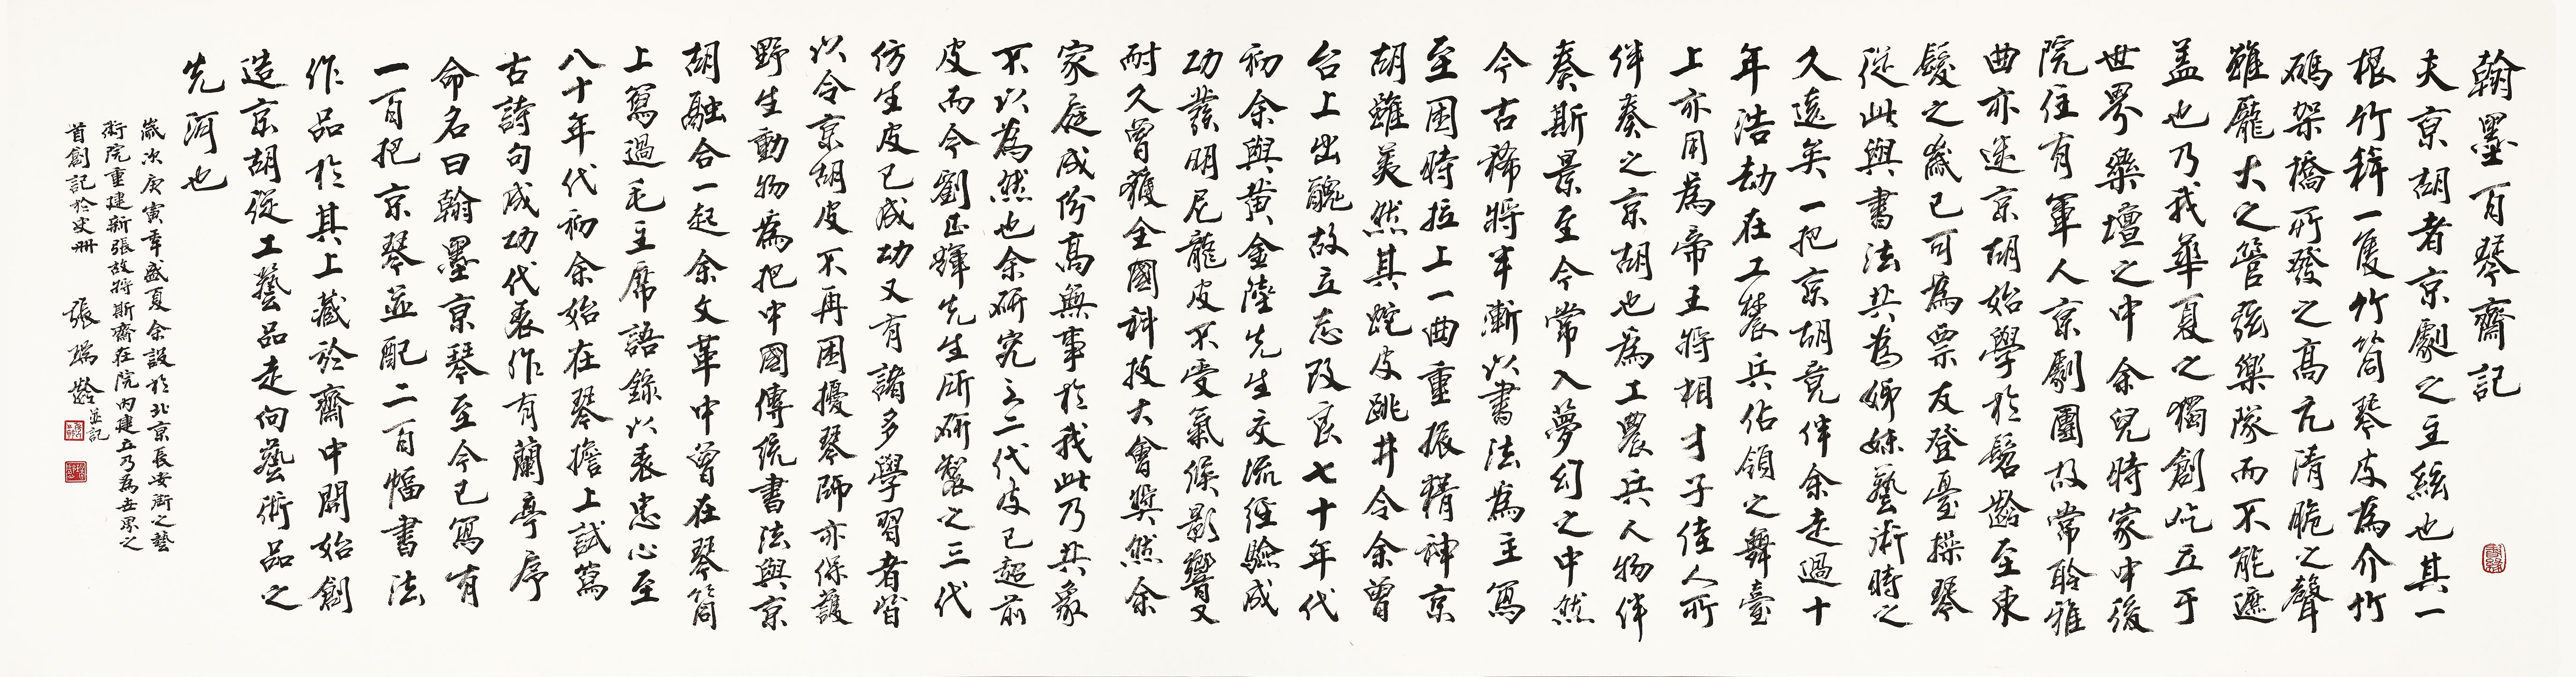 翰墨百琴齋記
夫京胡者京劇之主絃也其一
根竹稈一隻竹筒琴皮為介竹
碼架橋所發之高亢清脆之聲
雖龐大之管弦樂隊而不能遮
蓋也乃我華夏之獨創屹立于
世界樂壇之中余兒時家中後
院住有軍人京劇團故常聆雅
曲亦迷京胡始學於髫齡至束
髮之歲已可為票友登臺操琴
從此與書法共為姊妹藝術時之
久遠矣一把京胡竟伴余走過十
年浩劫在工農兵佔領之舞臺
上亦用為帝王將相才子佳人所
伴奏之京胡也為工農兵人物伴
奏斯景至今常入夢幻之中然
今古稀將至漸以書法為主寫
至困時拉上一曲重振精神京
胡雖美然其蛇皮跳井令余曾
台上出醜故立志改良七十年代
初余與黃金陸先生交流經驗成
功發明尼龍皮不受氣候影響又
耐久曾獲全國科技大會獎然余
家庭成份高無事於我此乃共象
不以為然也余研究之二代皮已超前
皮而今劉正輝先生所研製之三代
仿生皮已成功又有諸多學習者皆
以令京胡皮不再困擾琴師亦保護
野生動物為把中國傳統書法與京
胡融合一起余文革中曾在琴筒
上寫過毛主席語錄以表忠心至
八十年代初余始在琴擔上試篤
古詩句成功代表作有蘭亭序
命名曰翰墨京琴至今已寫有
一百把京琴並配二百幅書法
作品於其上藏於齋中開始創
造京胡從工藝品走向藝術品之
先河也
歲次庚寅年盛夏余設於北京長安街之藝
術院重建新張故將斯齋在院內建立乃為世界之
首創記於史冊
張瑞齡並記